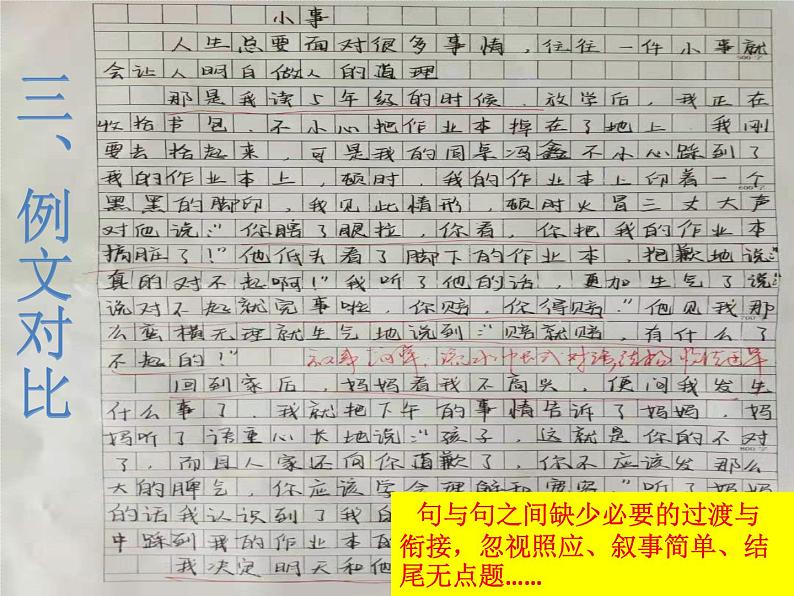 三、例文对比
小事
人生总要面对很多事情，往往一件小事就
会让人明白做人的道理
那是我读5年级的时候，放学后，我正在
收拾书包，不小心把作业本掉在了地上，我刚
要去捡起来，可是我的同桌冯鑫不小心踩到了
我的作业本上，顿时，我的作业本上印着一个
黑黑的脚印，我见此情形，顿时火冒三丈大声
对他说："你瞎了眼拉，你看，你把我的作业本
搞脏了！"他低头看了脚下的作业本，抱歉地说
真的对不起啊！"我听了他的话，更加生气了说
说对不起就完事啦，你赔，你得赔."他见我那
么蛮横无理就生气地说到："赔就赔，有什么了
不起的！"
回到家后，妈妈看我不高兴，便问我发生
什么事了，我就把下午的事情告诉了妈妈，妈
妈听了语重心长地说："孩子，这就是你的不对
了，而且人家还向你道歉了，你不应该发那么
大的脾气，你应该学会理解和宽容."听了妈妈
的话我认识到了我的
中踩到我的作业本
我决定明天和他
句与句之间缺少必要的过渡与
衔接，忽视照应、叙事简单、结
尾无点题......